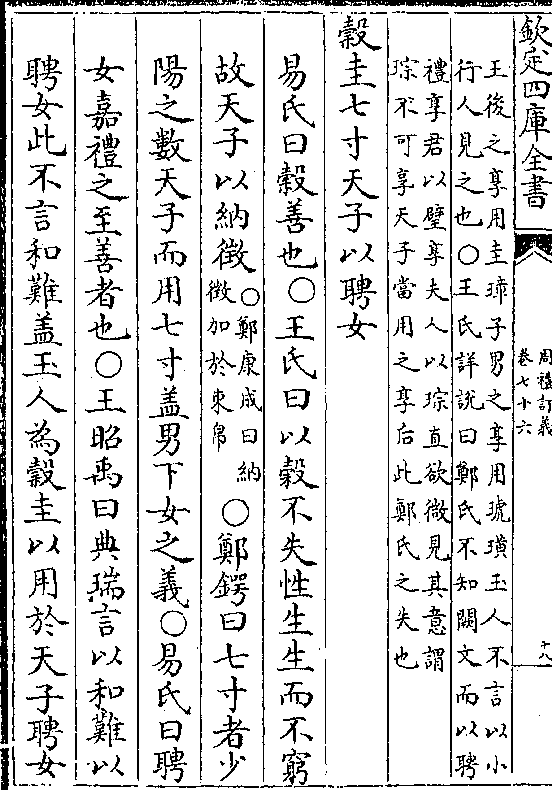 欽定四庫全書
周禮訂義
卷七十六
十八
王後之享用圭璋子男之享用琥璜玉人不言以小
行人見之也○王氏詳說曰鄭氏不知闕文而以聘
禮享君以璧享夫人以琮直欲微見其意謂
琮不可享天子當用之享后此鄭氏之失也
穀圭七寸天子以聘女
易氏曰穀善也○王氏曰以穀不失性生生而不窮
故天子以納徵○鄭康成曰納
徵加於束帛○鄭鍔曰七寸者少
陽之數天子而用七寸盖男下女之義○易氏曰聘
女嘉禮之至善者也○王昭禹曰典瑞言以和難以
聘女此不言和難盖玉人為穀圭以用於天子聘女